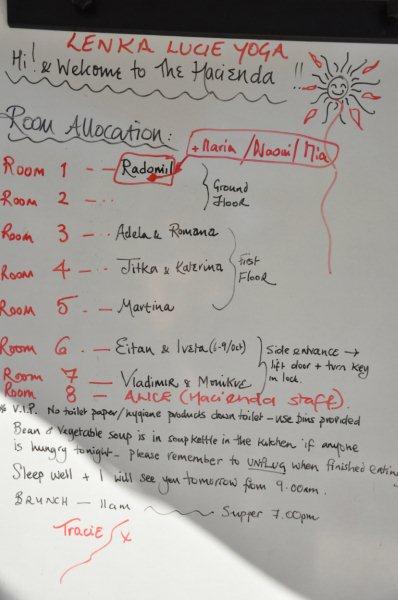 LENKA LUCIE YOGA
Hi! & Welcome to The Hacienda !!
Room Allocation:
+ Maria / Naomi / Mia
Room 1 -- Radomil
Room 2 --
Ground Floor
Room 3 -- Adela & Romana
Room 4 -- Jitka & Katerina
Room 5. - Martina
First Floor
Room 6. - Eitan & Iveta (6-9/oct)
Room 7 - Vladimir & Monika
Side entrance → lift door + turn key in lock.
Room 8 - ANCE (Hacienda staff).
* V.I.P. No toilet paper/hygiene products down toilet - use bins provided
Bean & Vegetable soup is in soup kettle in the kitchen if anyone
is hungry tonight - please remember to UNPLUG when finished eating
Sleep well + I will see you tomorrow from 9.00am.
BRUNCH - 11am Supper 7.00pm
Tracie x